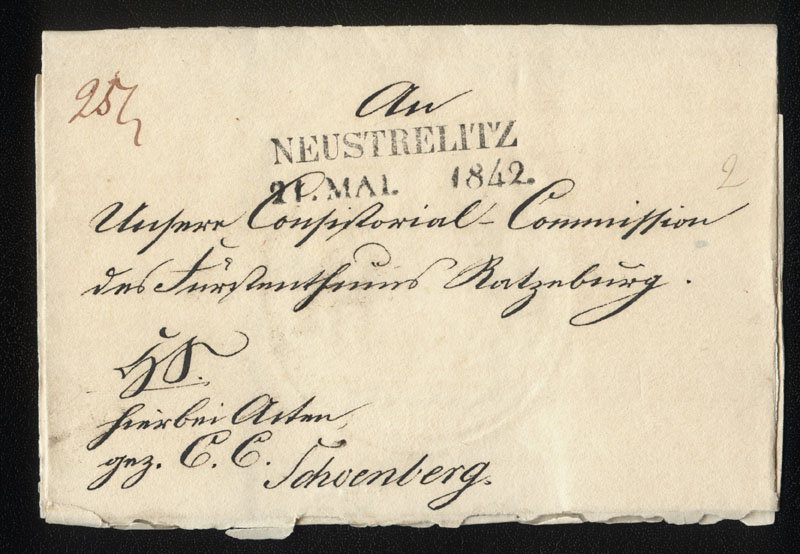 25/
An
NEUSTRELITZ
21. MAI. 1842.
2
Unsere Consistorial-Commission
des Fürstenthums Ratzeburg.
HS.
hierbei Acten,
gez. C. C.
Schoenberg.